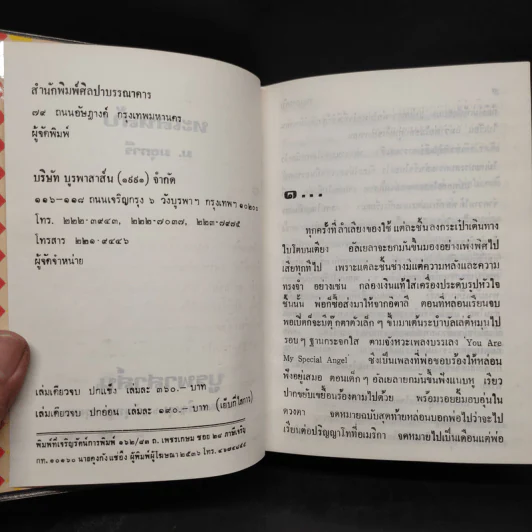 สำนักพิมพ์ศิลปาบรรณาคาร
๗๙ ถนนอัษฎางค์ กรุงเทพมหานคร
ผู้จัดพิมพ์
บริษัท บูรพาสาส์น (๑๙๙๑) จำกัด
๑๑๖-๑๑๘ ถนนเจริญกรุง ๖ วังบูรพาฯ กรุงเทพฯ ๑๐๒๐๐
โทร. ๒๒๒-๓๙๔๓, ๒๒๒-๗๐๓๗, ๒๒๓-๗๙๗๕
โทรสาร ๒๒๑-๙๔๔๖
ผู้จัดจำหน่าย
เล่มเดียวจบ ปกแข็ง เล่มละ ๓๖๐.- บาท
เล่มเดียวจบ ปกอ่อน เล่มละ ๑๙๐.- บาท (เย็บกี่ไสกาว)
พิมพ์ที่เจริญรัตน์การพิมพ์ ๑๖๒/๔๓ ถ. เพชรเกษม ซอย ๒๔ ภาษีเจริญ
กท. ๑๐๑๖๐ ผู้พิมพ์ผู้โฆษณา ๒๕๓๖ โทร.
๑...
ทุกครั้งที่ลำเลียงของใช้ แต่ละชิ้นลงกระเป๋าเดินทาง
ใบโตบนเตียง อัยเยลาจะยกมันขึ้นมองอย่างเพ่งพิศไป
เสียทุกทีไป เพราะแต่ละชิ้นช่างมีแต่ความหลังและความ
ทรงจำ อย่างเช่น กล่องเงินแท้ใส่เครื่องประดับรูปหัวใจ
ชิ้นนั้น พ่อก็ซื้อส่งมาให้จากอิตาลี ตอนที่หล่อนเรียนจบ
พอเปิดก็จะมีตุ๊กตาตัวเล็กๆ ขึ้นมาเต้นระบำบัลเลต์หมุนไป
รอบๆ ฐานกระจกใส ตามจังหวะเพลงบรรเลง 'You Are
My Special Angel' ซึ่งเป็นเพลงที่พ่อชอบร้องให้หล่อน
ฟังอยู่เสมอ ตอนเด็กๆ อัยเยลายกมันขึ้นฟังแนบหู เรียว
ปากขยับเขยื้อนร้องตามไปด้วย พร้อมรอยยิ้มอบอุ่นใน
ดวงตา จดหมายฉบับสุดท้ายหล่อนบอกพ่อไปว่าจะไป
เรียนต่อปริญญาโทที่อเมริกา จดหมายไปเป็นเดือนแต่พ่อ